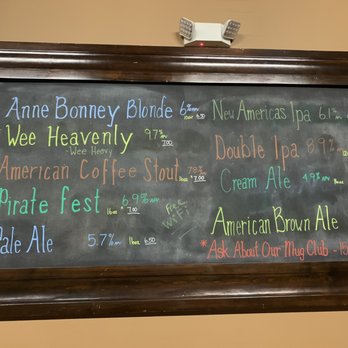 Anne Bonney Blonde 6% 16oz 6.00
Wee Heavenly 9.7% 7.00
-Wee Heavy
American Coffee Stout 7.8% 7.00
Pirate Fest 6.9% 16oz 7.00
Pale Ale 5.7% 16oz 6.00
Free WiFi
New Americas Ipa 6.1%
Double Ipa 8.9%
Cream Ale 4.9%
American Brown Ale
*Ask About Our Mug Club -